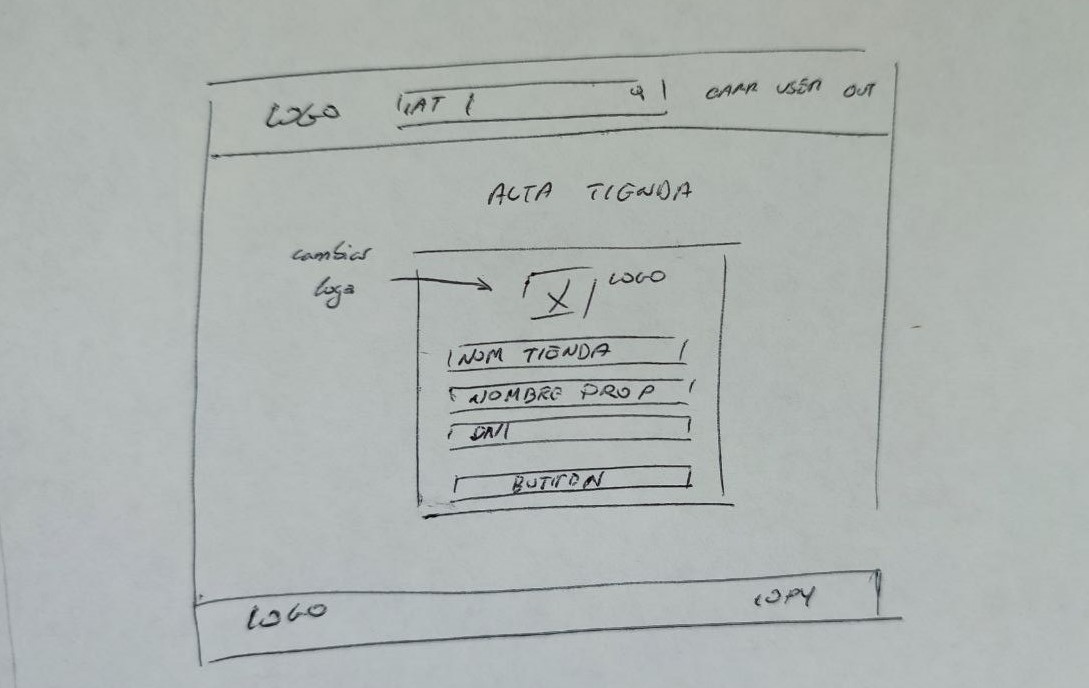 LOGO CAT Q CARR USER OUT
ALTA TIENDA
cambiar
logo
X LOGO
NOM TIENDA
NOMBRE PROP
DNI
BUTTON
LOGO COPY